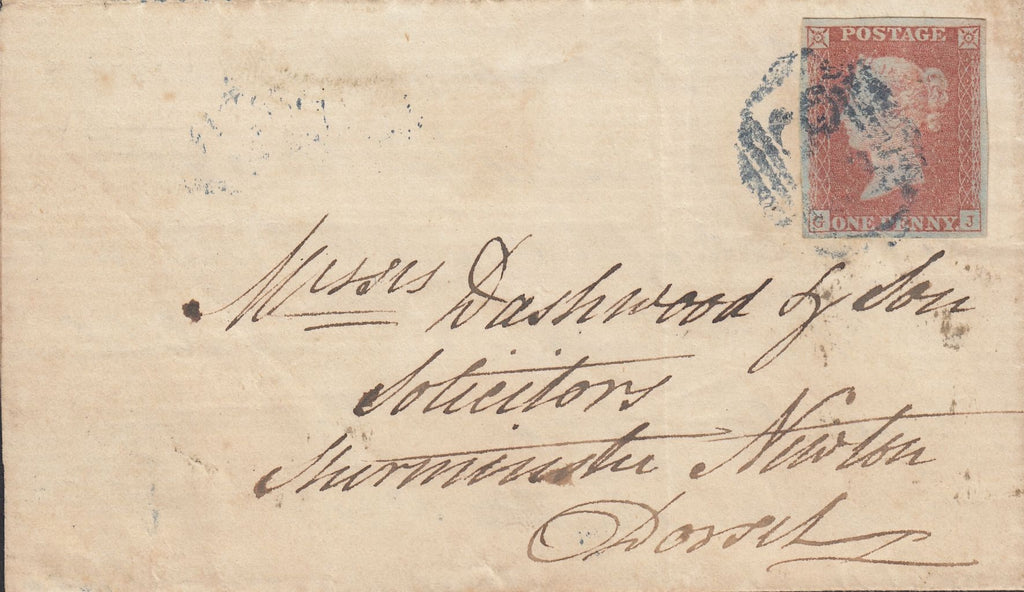 POSTAGE
G ONE PENNY. J
Messrs Dashwood & Son
Solicitors
Sturminster Newton
Dorset